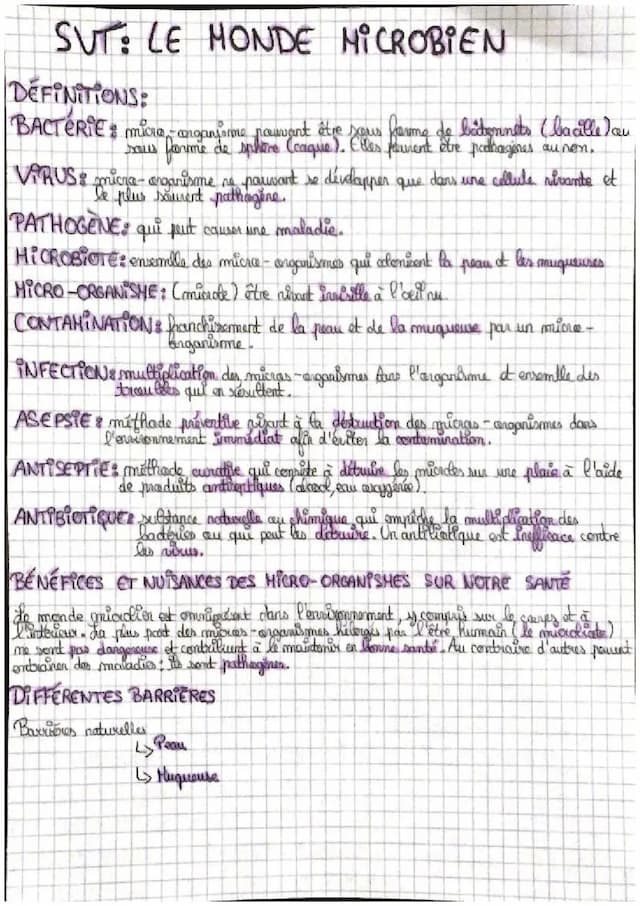 SVT: LE MONDE MICROBIEN
DÉFINITIONS:
BACTÉRIE: micro-organisme pouvant être sous forme de bâtonnets (bacille) ou
sous forme de sphère (coque). Elles peuvent être pathogènes ou non.
VIRUS: micro-organisme ne pouvant se développer que dans une cellule vivante et
le plus souvent pathogène.
PATHOGÈNE: qui peut causer une maladie.
MICROBIOTE: ensemble des micro-organismes qui colonisent la peau et les muqueuses
MICRO-ORGANISME: (microbe) être vivant invisible à l'oeil nu.
CONTAMINATION: franchissement de la peau et de la muqueuse par un micro-
organisme.
INFECTION: multiplication des micros-organismes dans l'organisme et ensemble des
troubles qui en résultent.
ASEPSIE: méthode préventive visant à la destruction des micros-organismes dans
l'environnement immédiat afin d'éviter la contamination.
ANTISEPTIE: méthode curative qui consiste à détruire les microbes sur une plaie à l'aide
de produits antiseptiques (alcool, eau oxygénée).
ANTIBIOTIQUE: substance naturelle ou chimique qui empêche la multiplication des
bactéries ou qui peut les détruire. Un antibiotique est inefficace contre
les virus.
BÉNÉFICES ET NUISANCES DES MICRO-ORGANISMES SUR NOTRE SANTÉ
Le monde microbien est omniprésent dans l'environnement, y compris sur le corps et à
l'intérieur. La plus part des micros-organismes hébergés par l'être humain (le microbiote)
ne sont pas dangereux et contribuent à le maintenir en bonne santé. Au contraire d'autres peuvent
entraîner des maladies: ils sont pathogènes.
DIFFÉRENTES BARRIÈRES
Barrières naturelles
↳ Peau
↳ Muqueuse